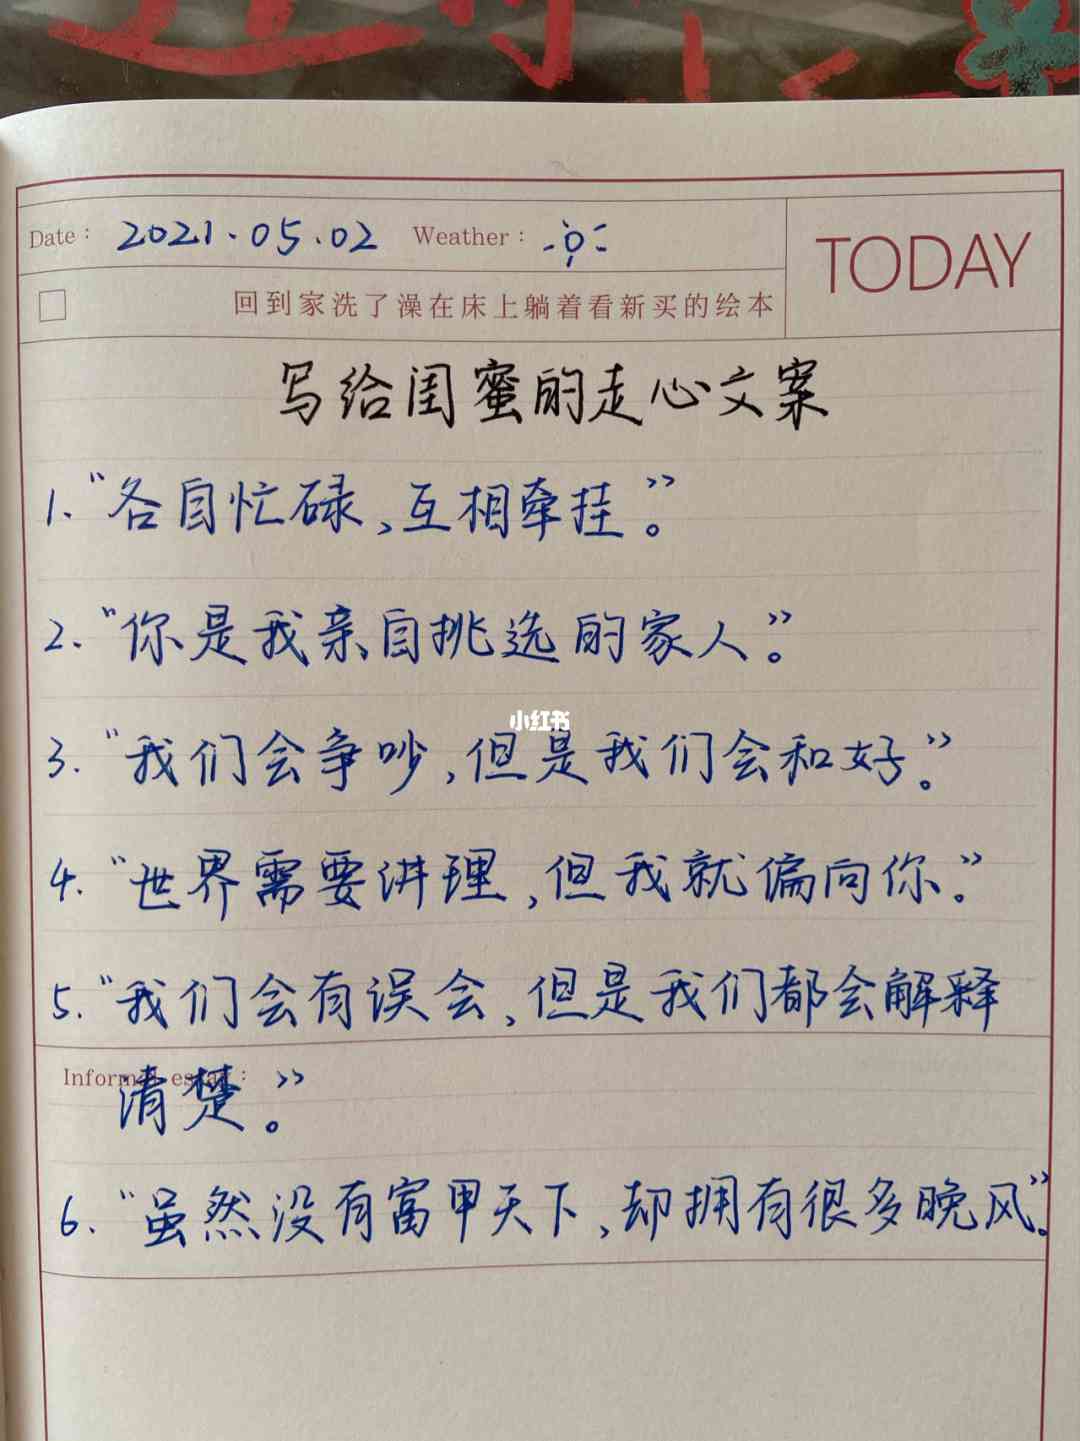 Date： 2021.05.02 Weather：
TODAY
回到家洗了澡在床上躺着看新买的绘本
写给闺蜜的走心文案
1.“各自忙碌，互相牵挂”。
2.“你是我亲自挑选的家人”。
小红书
3.“我们会争吵，但是我们会和好”。
4.“世界需要讲理，但我就偏向你”。
5.“我们会有误会，但是我们都会解释
Informal essay：
清楚。”
6.“虽然没有富甲天下，却拥有很多晚风”。